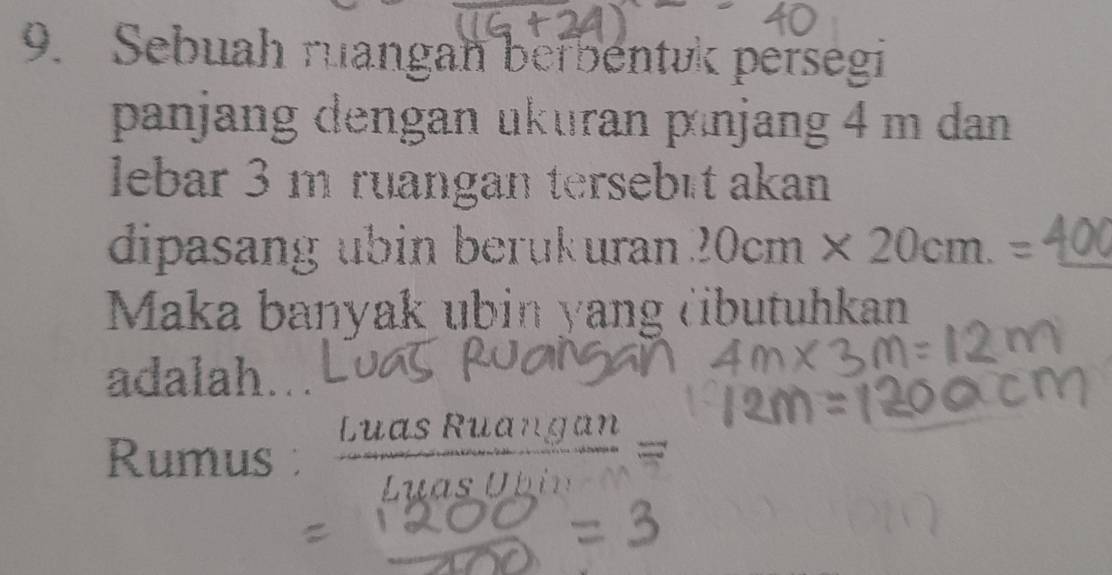 (16+24) 40
9. Sebuah ruangan berbentuk persegi
panjang dengan ukuran panjang 4 m dan
lebar 3 m ruangan tersebut akan
dipasang ubin berukuran 20cm × 20cm. = 400
Maka banyak ubin yang dibutuhkan
adalah... Luas Ruangan 4m×3m=12m
12m=1200cm
Rumus : Luas Ruangan / Luas Ubin =
= 1200 / 400 = 3